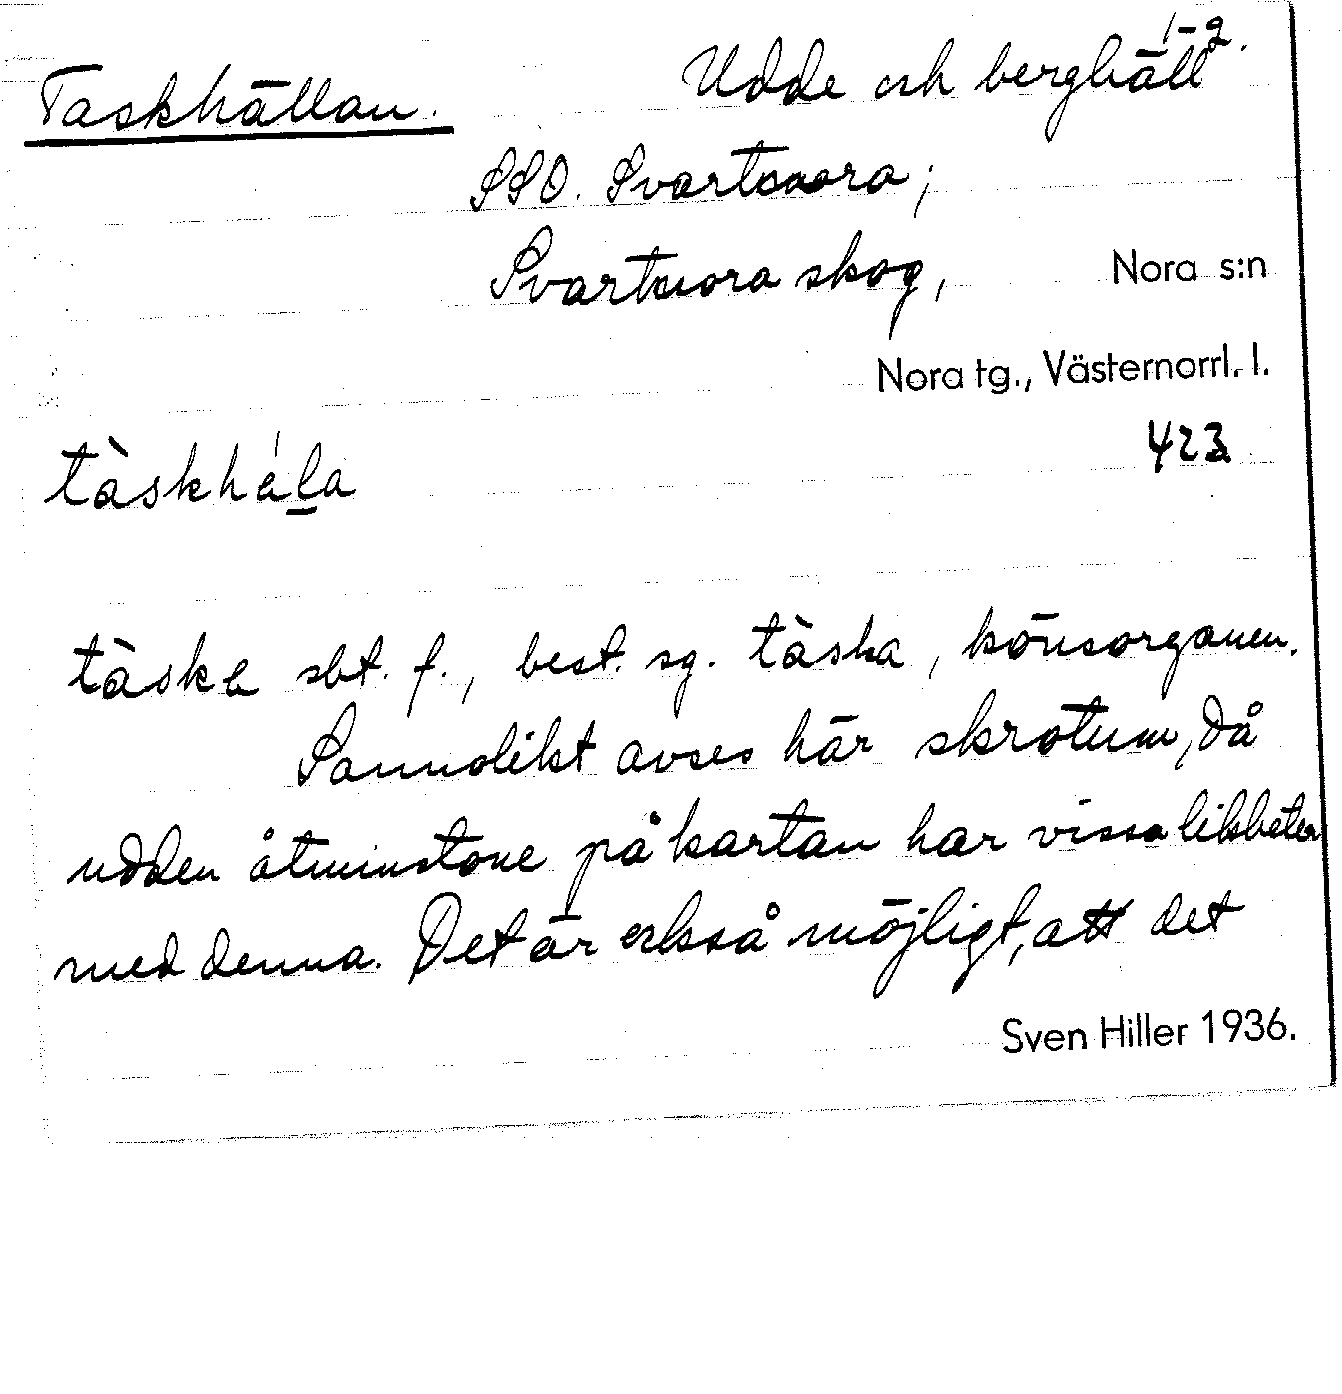 1-2.
Taskhällan. Udde och berghäll
SSO. Svartnora;
Svartnora skog, Nora s:n
Nora tg., Västernorrl. l.
423
tàskhá̱la
tàska sbt. f., best. sg. tàska, könsorganen.
Sannolikt avses här skrotum, då
udden åtminstone på kartan har vissa likheter
med denna. Det är också möjligt, att det
Sven Hiller 1936.